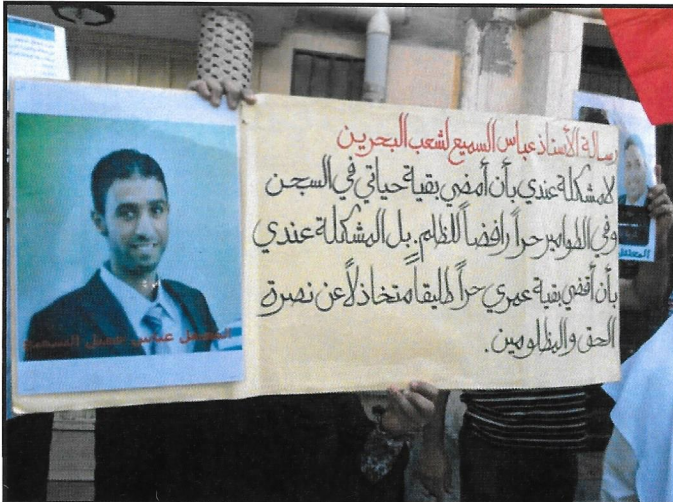 رسالة الأستاذ عباس السميع لشعب البحرين
لا مشكلة عندي بأن أمضي بقية حياتي في السجن
وفي الطوامير حراً رافضاً للظلم. بل المشكلة عندي
بأن أقضي بقية عمري حراً طليقاً متخاذلاً عن نصرة
الحق والمظلومين.
المعتقل عباس جميل السميع
المعتقل